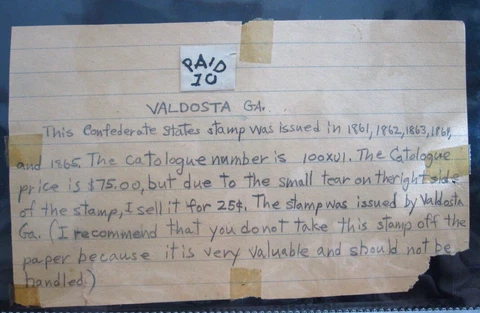 PAID
10
VALDOSTA GA.
This Confederate States stamp was issued in 1861, 1862, 1863, 1861,
and 1865. The catologue number is 100XU1. The Catologue
price is $75.00, but due to the small tear on the right side
of the stamp, I sell it for 25¢. The stamp was issued by Valdosta
Ga. (I recommend that you do not take this stamp off the
paper because it is very valuable and should not be
handled.)